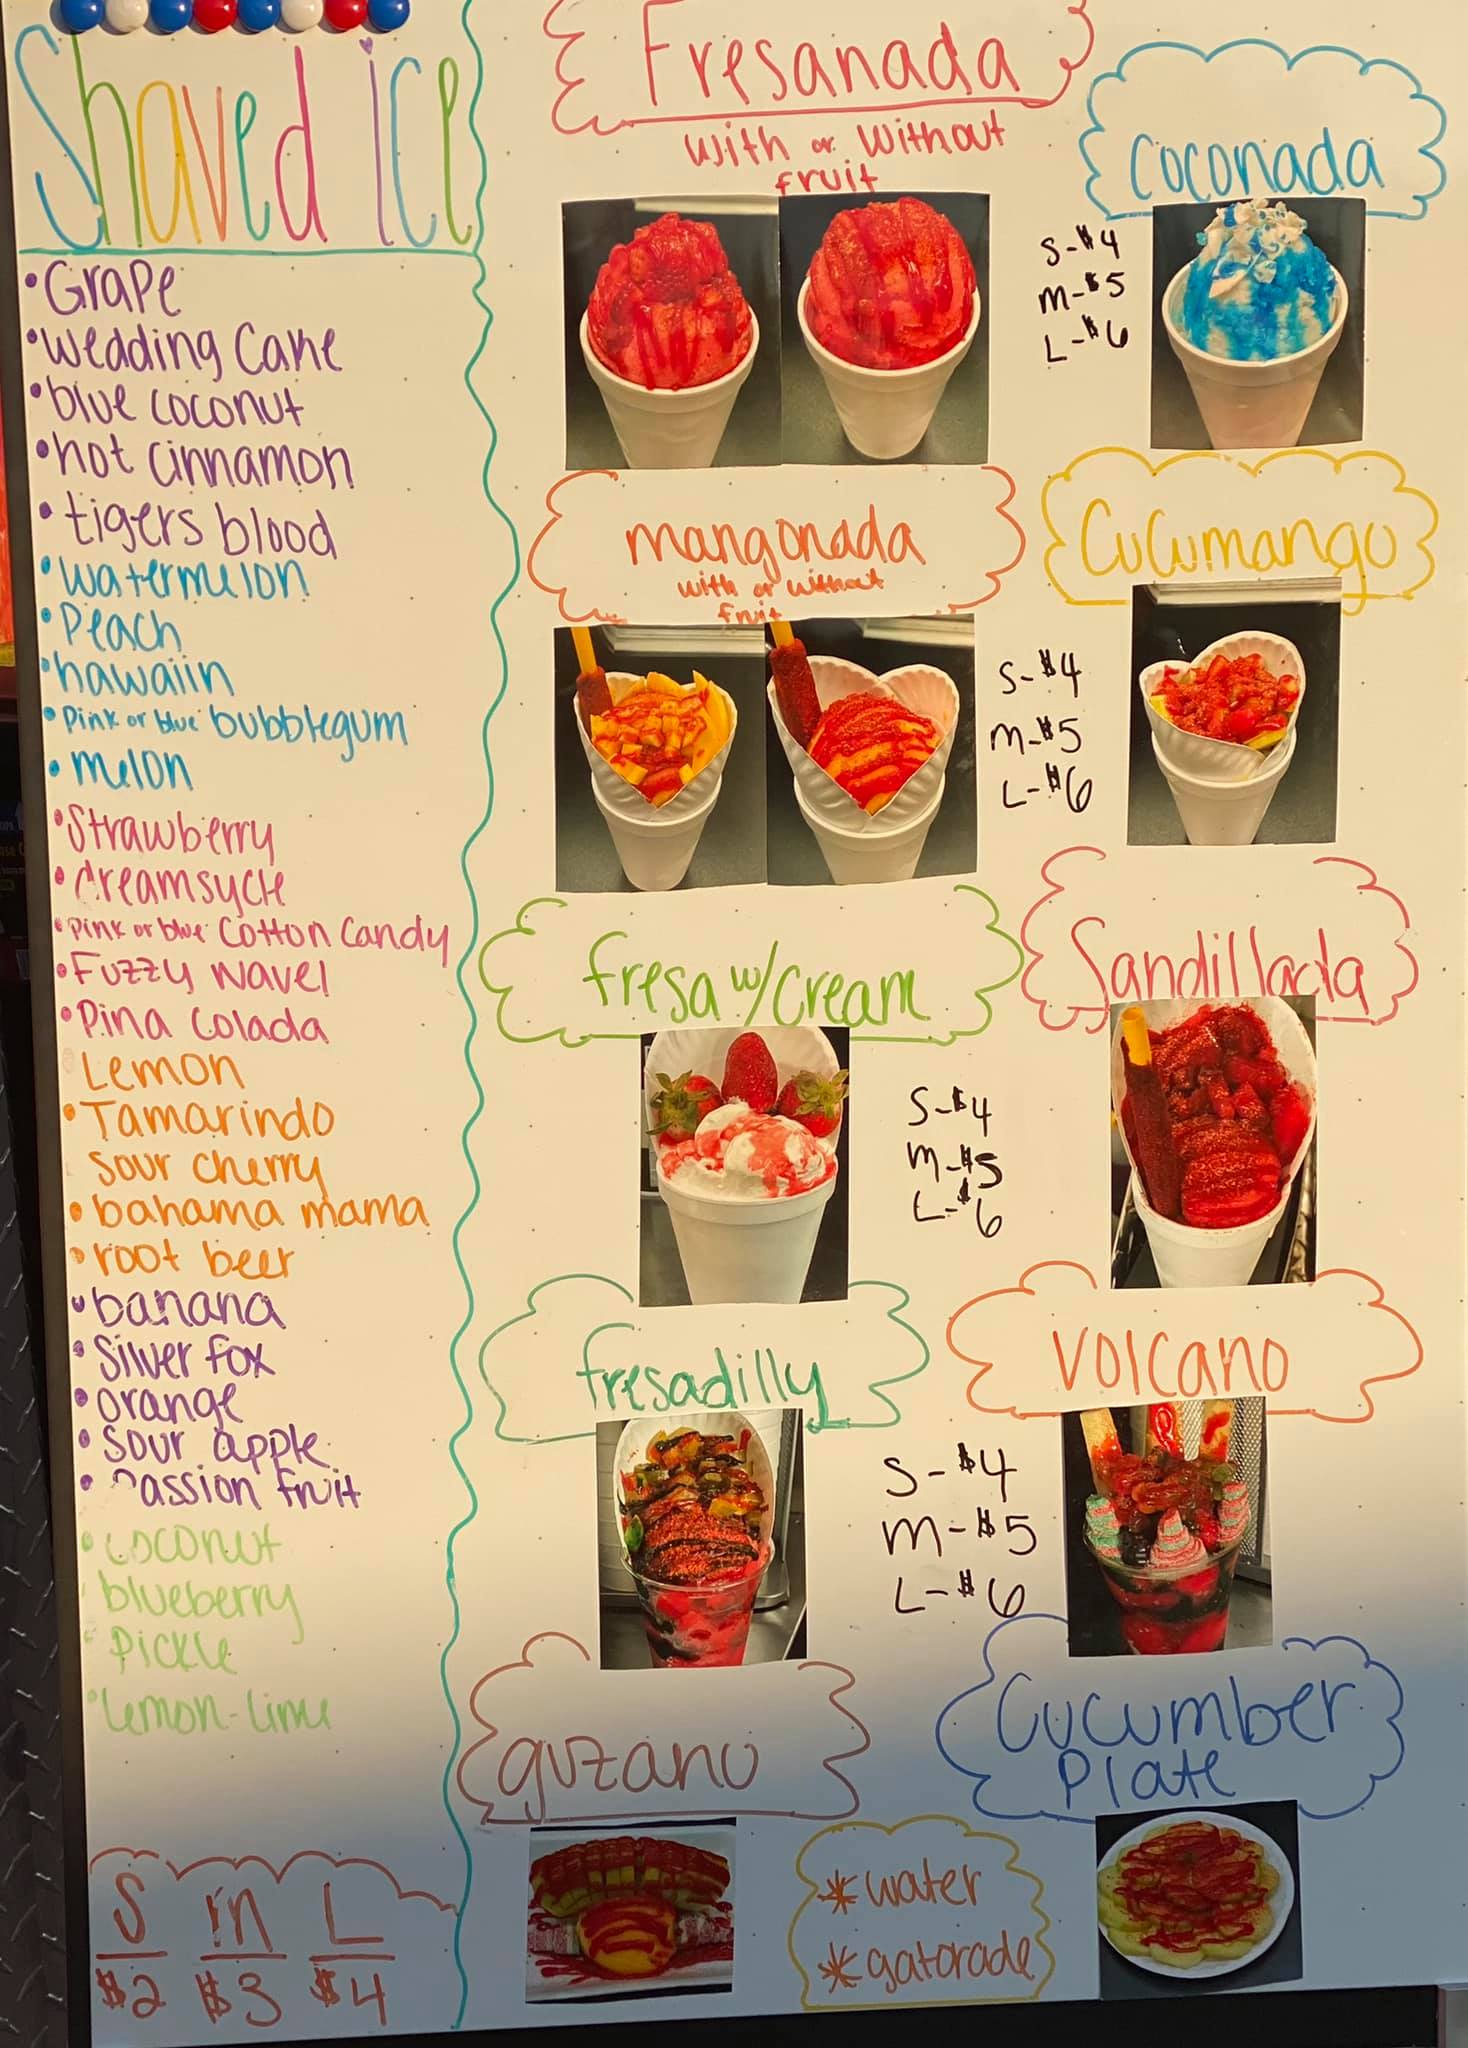 Shaved ice
• Grape
• wedding Cake
• blue coconut
• hot cinnamon
• tigers blood
• watermelon
• Peach
• hawaiin
• Pink or blue bubblegum
• melon
• Strawberry
• dreamsycle
• Pink or blue Cotton Candy
• Fuzzy navel
• Pina Colada
Lemon
• Tamarindo
sour cherry
• bahama mama
• root beer
• banana
• Silver fox
• orange
• sour apple
• Passion fruit
• coconut
• blueberry
• Pickle
• lemon-lime
S m L
$2 $3 $4
Fresanada
with or without
fruit
coconada
S-$4
m-$5
L-$6
mangonada
with or without
fruit
Cucumango
S-$4
m-$5
L-$6
fresa w/cream
Sandillada
S-$4
m-$5
L-$6
fresadilly
volcano
S-$4
m-$5
L-$6
guzano
Cucumber
Plate
* water
* gatorade